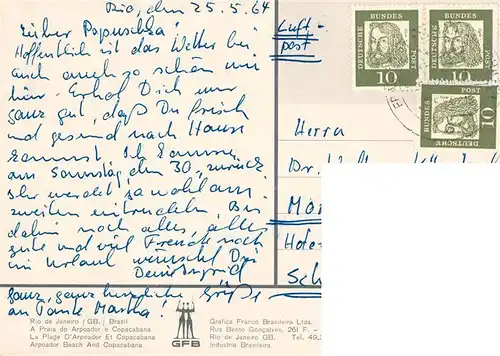 Rio, den 25.5.64
Lieber Papuschka!
Hoffentlich ist das Wetter bei
euch auch so schön wie
hier. Erhol Dich nur
ganz gut, daß Du frisch
und gesund nach Hause
kommst. Ich komme
am Samstag, den 30., zurück,
Ihr werdet ja wohl am
zweiten eintrudeln. Bis
dahin noch alles, alles
gute und viel Freude noch
im Urlaub wünscht Dir
Deine Ingrid
ganz, ganz herzliche Grüße
an Tante Martha!
Luft-
post
Herrn
Dr.
Rio de Janeiro / GB. / Brasil
A Praia do Arpoador e Copacabana
La Plage D'Arpoador Et Copacabana
Arpoador Beach And Copacabana
GFB
Grafica Franco Brasileira Ltda.
Rua Bento Gonçalves, 261 F. -
Rio de Janeiro GB. Tel. 49.2
Industria Brasileira
DEUTSCHE BUNDES POST
10
DEUTSCHE BUNDES POST
10
DEUTSCHE BUNDES POST
10